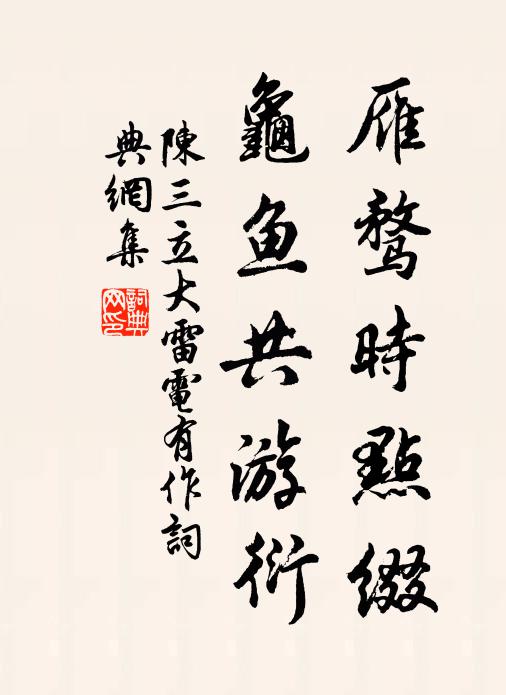 雁鶩時點綴
龜魚共游衍
陳三立大雷電有作詞
典網集
詞典網印